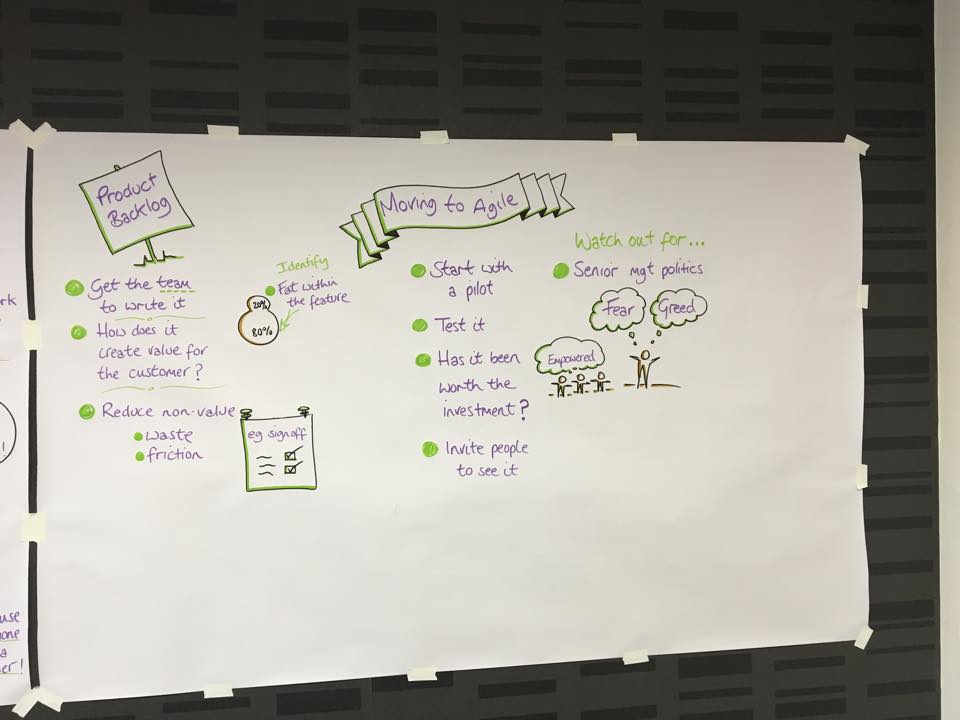 Product
Backlog
Get the team
to write it
How does it
create value for
the customer?
Reduce non-value
waste
friction
Identify
Fat within
the feature
20%
80%
eg signoff
Moving to Agile
Start with
a pilot
Test it
Has it been
worth the
investment?
Invite people
to see it
Watch out for...
Senior mgt politics
Fear
Greed
Empowered
rk
!
use
one
a
er!